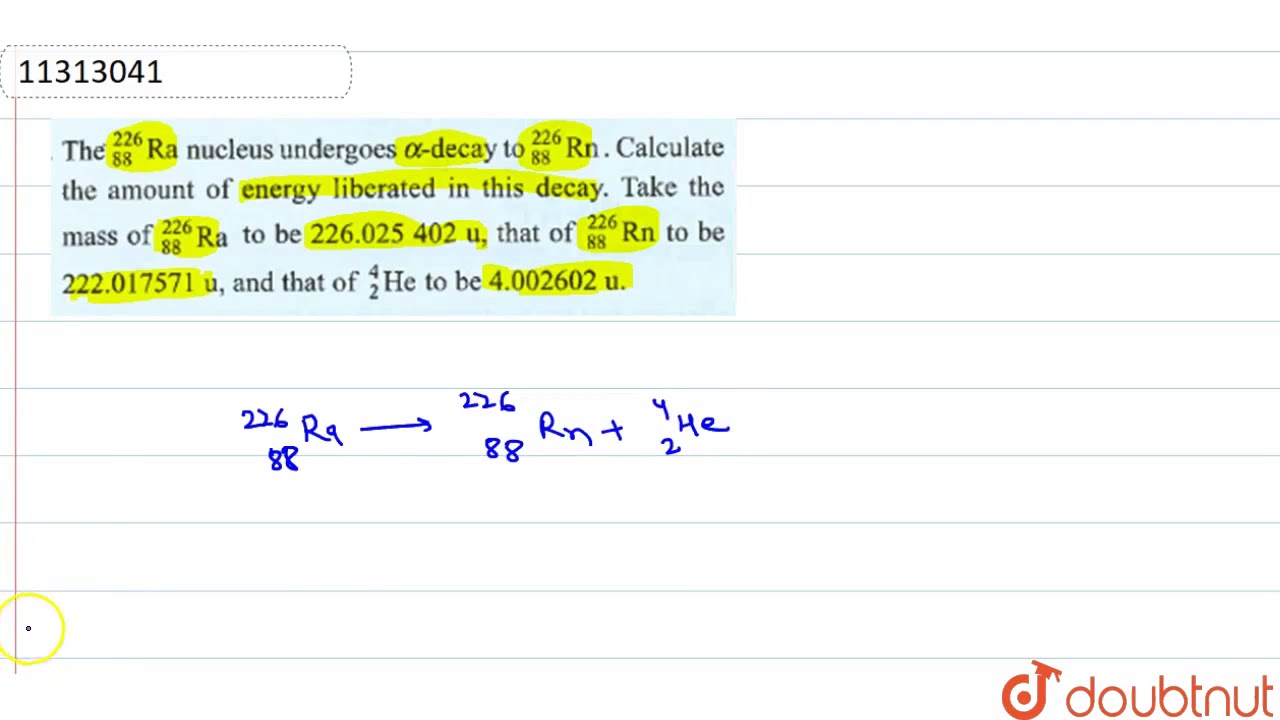 11313041
The ²²⁶₈₈Ra nucleus undergoes α-decay to ²²⁶₈₈Rn. Calculate
the amount of energy liberated in this decay. Take the
mass of ²²⁶₈₈Ra to be 226.025 402 u, that of ²²⁶₈₈Rn to be
222.017571 u, and that of ⁴₂He to be 4.002602 u.
²²⁶₈₈Ra → ²²⁶₈₈Rn + ⁴₂He
doubtnut